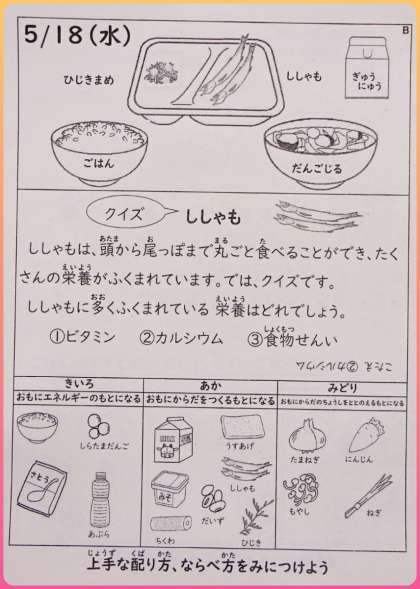 5/18(水)
B
ひじきまめ
ししゃも
ぎゅう
にゅう
ごはん
だんごじる
クイズ
ししゃも
ししゃもは、頭から尾っぽまで丸ごと食べることができ、たく
さんの栄養がふくまれています。では、クイズです。
ししゃもに多くふくまれている 栄養はどれでしょう。
①ビタミン ②カルシウム ③食物せんい
こたえ ②カルシウム
きいろ
おもにエネルギーのもとになる
しらたまだんご
さとう
あぶら
あか
おもにからだをつくるもとになる
うすあげ
ししゃも
みそ
だいず
ちくわ
ひじき
みどり
おもにからだのちょうしをととのえるもとになる
たまねぎ
にんじん
もやし
ねぎ
上手な配り方、ならべ方をみにつけよう